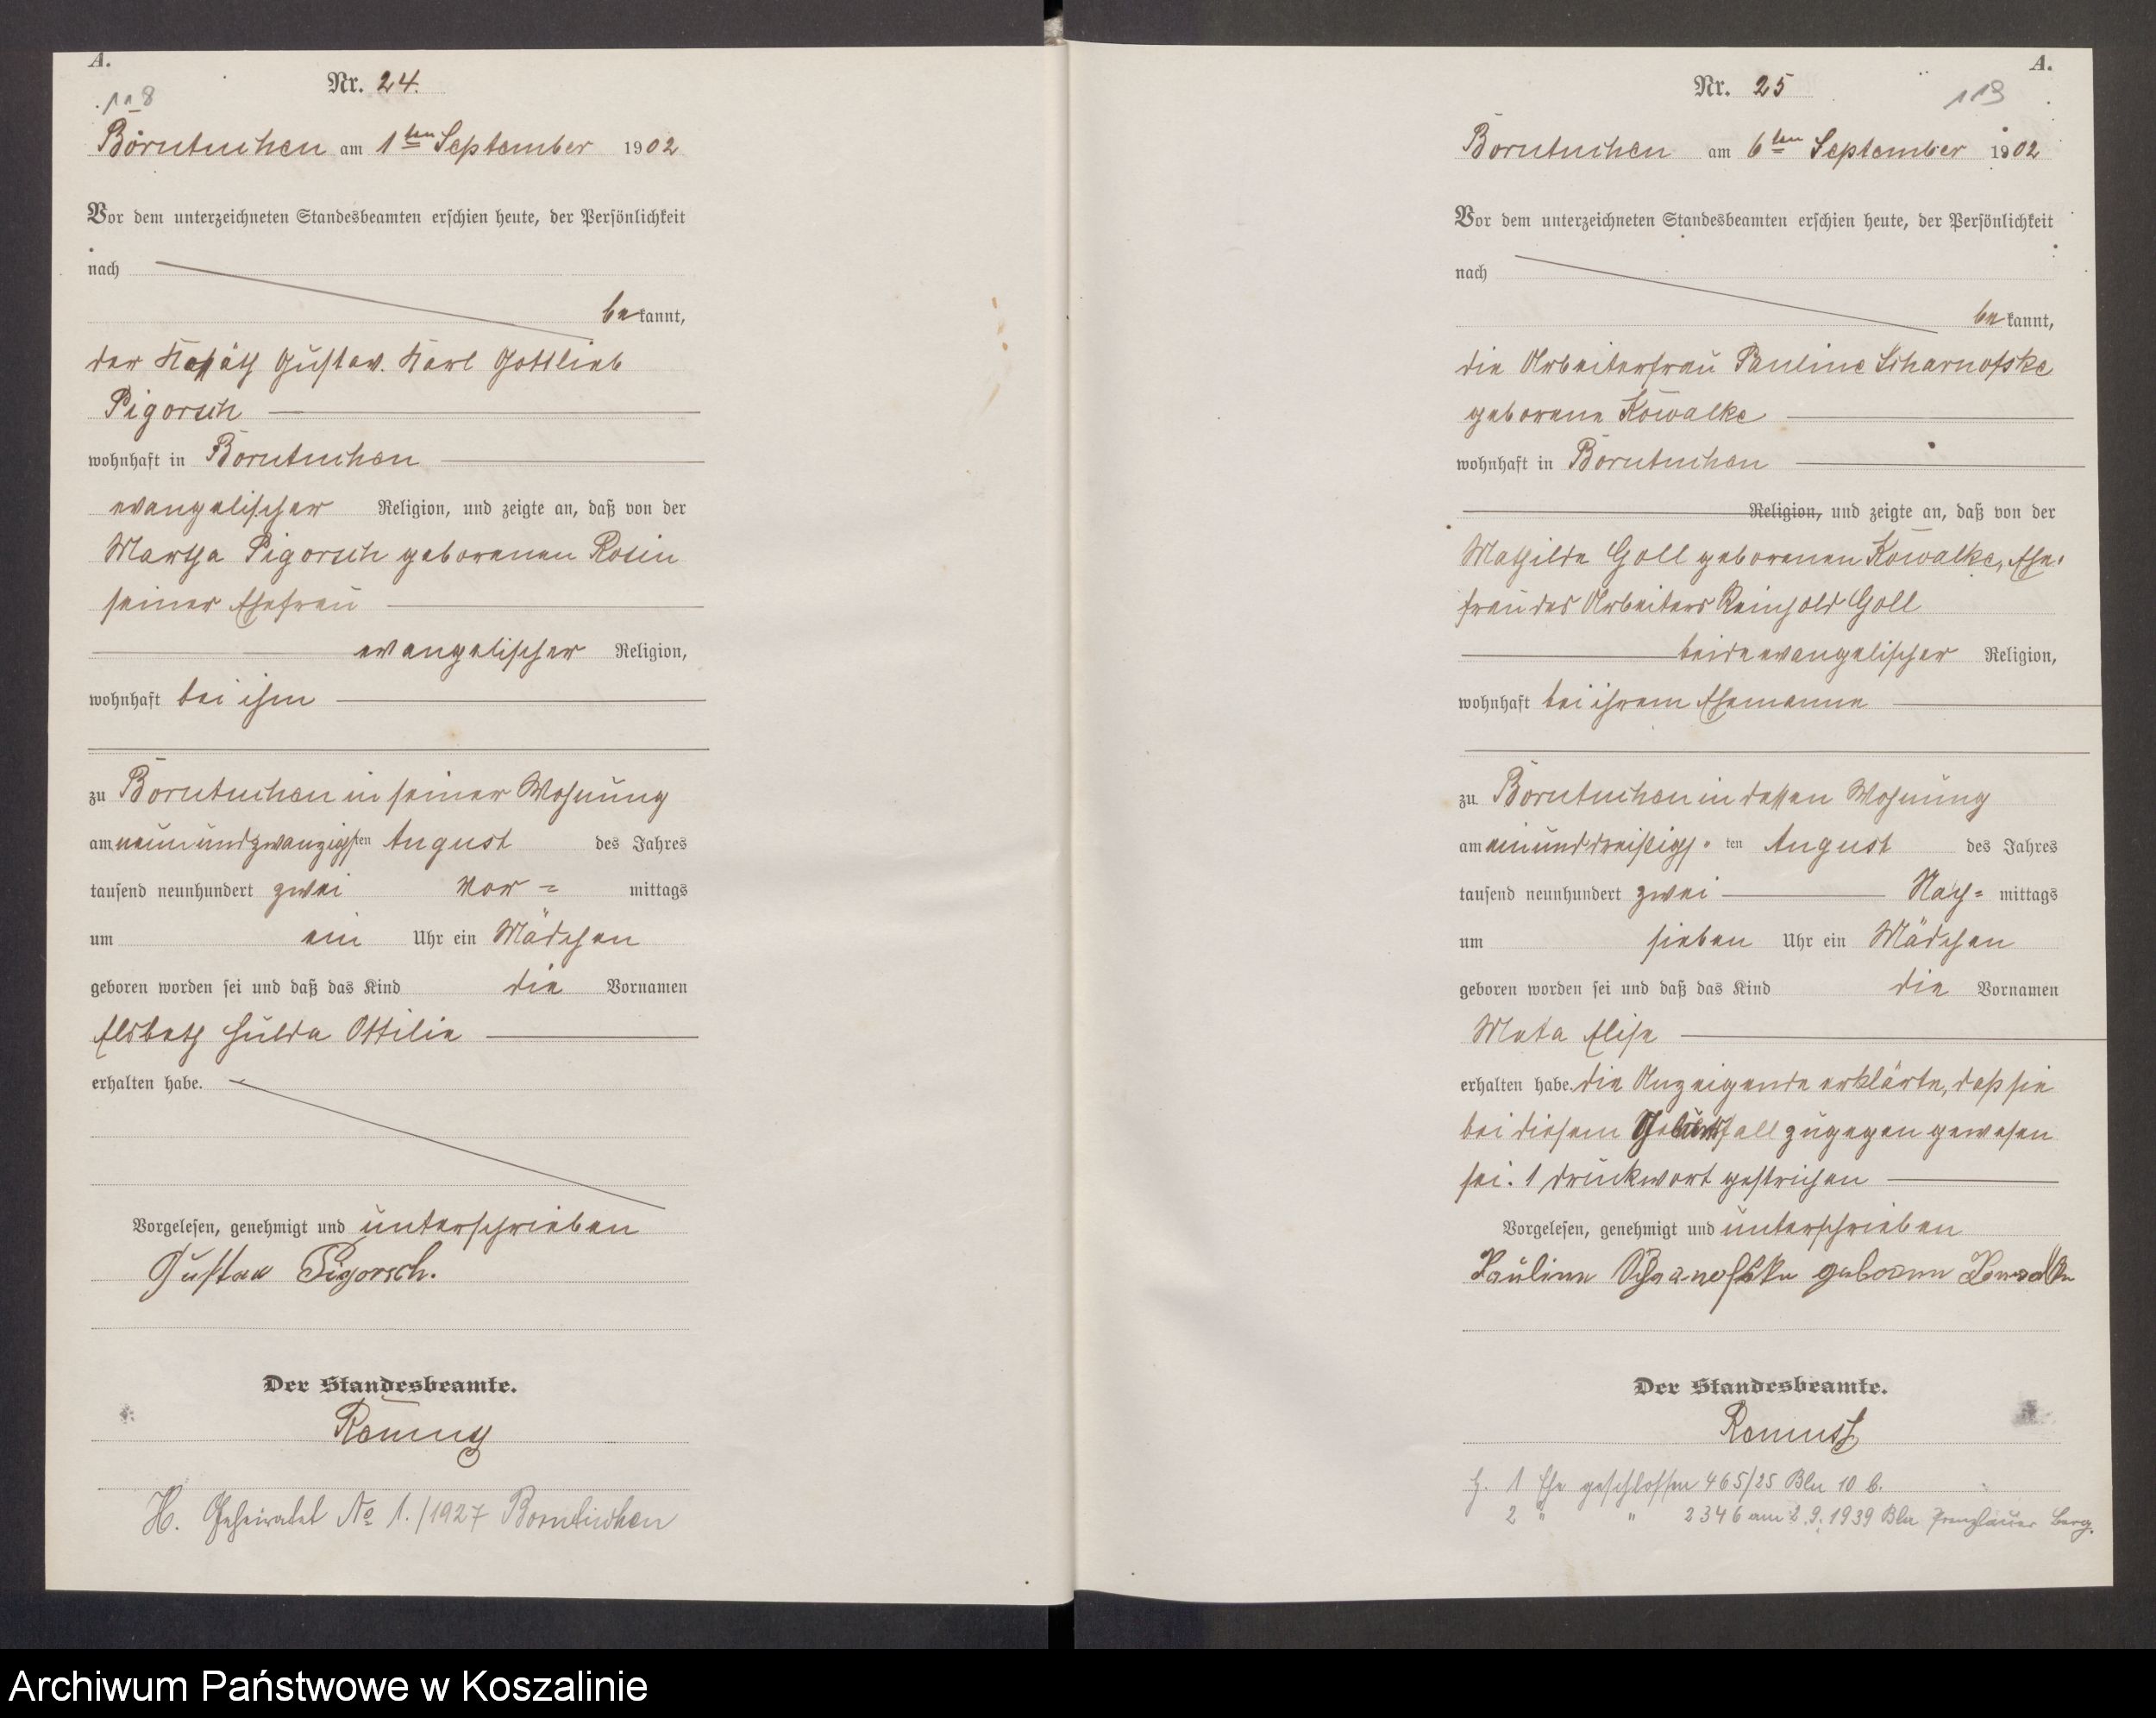 A.
118
Nr. 24.
Borntuchen am 1ten September 1902
Vor dem unterzeichneten Standesbeamten erschien heute, der Persönlichkeit
nach
bekannt,
der Gustav Karl Gottlieb
Pigorsch
wohnhaft in Borntuchen
evangelischer Religion, und zeigte an, daß von der
Martha Pigorsch geborenen Rosin
seiner Ehefrau
evangelischer Religion,
wohnhaft bei ihm
zu Borntuchen in seiner Wohnung
am neunundzwanzigsten August des Jahres
tausend neunhundert zwei Vor= mittags
um ein Uhr ein Mädchen
geboren worden sei und daß das Kind die Vornamen
Elsbeth Hulda Ottilie
erhalten habe.
Vorgelesen, genehmigt und unterschrieben
Gustav Pigorsch.
Der Standesbeamte.
H. Geheiratet No 1./1927 Borntuchen
A.
119
Nr. 25
Borntuchen am 6ten September 1902
Vor dem unterzeichneten Standesbeamten erschien heute, der Persönlichkeit
nach
bekannt,
die Arbeiterfrau Pauline Scharnofske
geborene Kowalke
wohnhaft in Borntuchen
Religion, und zeigte an, daß von der
Mathilde Goll geborenen Kowalke, Ehe-
frau des Arbeiters Reinhold Goll
beide evangelischer Religion,
wohnhaft bei ihrem Ehemanne
zu Borntuchen in dessen Wohnung
am einunddreißigsten August des Jahres
tausend neunhundert zwei Nach= mittags
um sieben Uhr ein Mädchen
geboren worden sei und daß das Kind die Vornamen
Meta Elise
erhalten habe. die Anzeigende erklärte, daß sie
bei diesem Geburtsfall zugegen gewesen
sei. 1 Druckwort gestrichen
Vorgelesen, genehmigt und unterschrieben
Pauline geborene
Der Standesbeamte.
1 Ehe geschlossen 465/25 Bln 10 b.
2 " " 2346 am 2.9.1939 Bln Prenzlauer Berg.
Archiwum Państwowe w Koszalinie